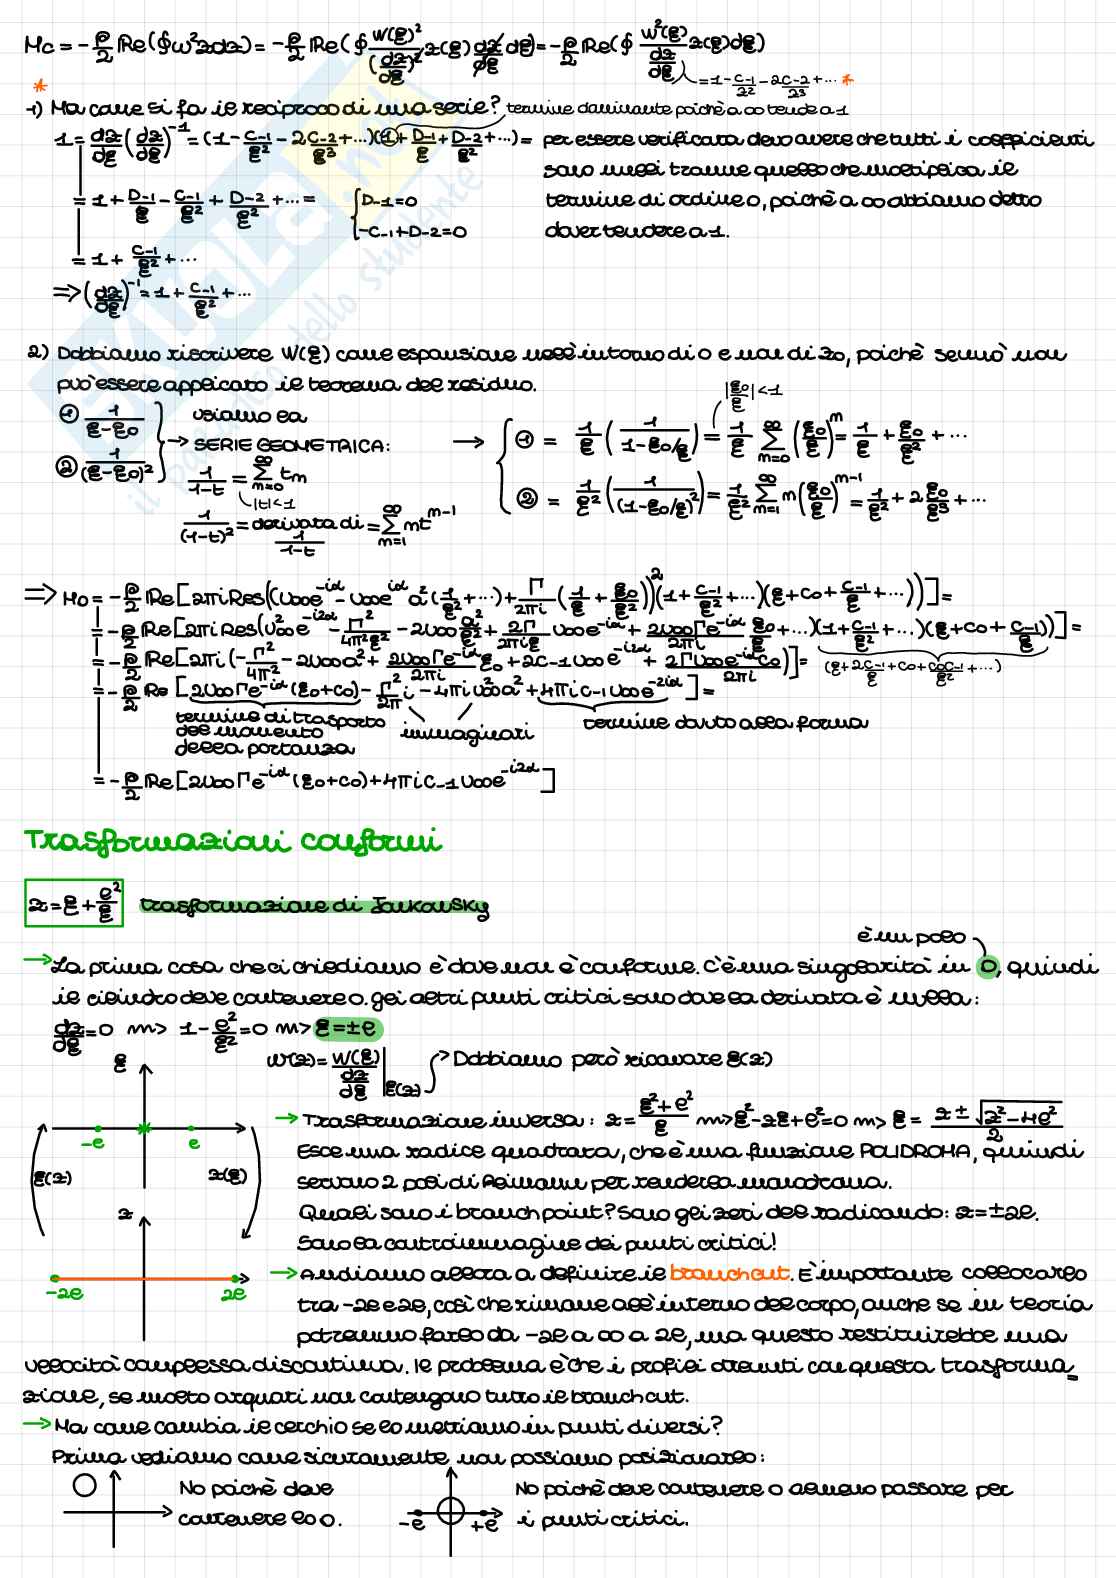 Mc = -ρ/2 Re(∮w²zdz) = -ρ/2 Re(∮ W(ξ)²/(dz/dξ)² z(ξ) dz/dξ dξ) = -ρ/2 Re(∮ W²(ξ)/(dz/dξ) z(ξ)dξ)
* = 1 - C-1/ξ² - 2C-2/ξ³ + ... *
1) Ma come si fa il reciproco di una serie? termine dominante poichè a ∞ tende a 1
1 = dz/dξ (dz/dξ)^-1 = (1 - C-1/ξ² - 2C-2/ξ³ + ...)(1 + D-1/ξ + D-2/ξ² + ...) = per essere verificata devo avere che tutti i coefficienti
siano nulli tranne quello che moltiplica il
= 1 + D-1/ξ - C-1/ξ² + D-2/ξ² + ... = { D-1 = 0 termine di ordine 0, poichè a ∞ abbiamo detto
-C-1 + D-2 = 0 dover tendere a 1.
= 1 + C-1/ξ² + ...
⇒ (dz/dξ)^-1 = 1 + C-1/ξ² + ...
2) Dobbiamo riscrivere W(ξ) come espansione nell'intorno di 0 e non di z0, poichè sennò non
può essere applicato il teorema del residuo.
① 1/(ξ-ξ0) usiamo la |ξ0/ξ| < 1
→ SERIE GEOMETRICA: → ① = 1/ξ (1/(1-ξ0/ξ)) = 1/ξ ∑ m=0 ∞ (ξ0/ξ)^m = 1/ξ + ξ0/ξ² + ...
② 1/(ξ-ξ0)² 1/(1-t) = ∑ m=0 ∞ tm
|t| < 1 ② = 1/ξ² (1/(1-ξ0/ξ)²) = 1/ξ² ∑ m=1 ∞ m(ξ0/ξ)^m-1 = 1/ξ² + 2ξ0/ξ³ + ...
1/(1-t)² = derivata di 1/(1-t) = ∑ m=1 ∞ mt^m-1
⇒ M0 = -ρ/2 Re[2πi Res((U∞e^-iα - U∞e^iα a²(1/ξ² + ...) + Γ/2πi (1/ξ + ξ0/ξ²))²(1 + C-1/ξ² + ...)(ξ + C0 + C-1/ξ + ...))] =
= -ρ/2 Re[2πi Res(U∞²e^-i2α - Γ²/4π²ξ² - 2U∞ a²/ξ² + 2Γ/2πiξ U∞e^-iα + 2U∞Γe^-iα/2πi ξ0 + ...)(1 + C-1/ξ² + ...)(ξ + C0 + C-1/ξ))] =
(ξ + 2C-1/ξ + C0 + C0C-1/ξ² + ...)
= -ρ/2 Re[2πi(-Γ²/4π² - 2U∞a² + 2U∞Γe^-iα/2πi ξ0 + 2C-1U∞e^-i2α + 2ΓU∞e^-iαC0/2πi)] =
= -ρ/2 Re[2U∞Γe^-iα(ξ0+C0) - Γ²/2π i - 4πiU∞²a² + 4πiC-1U∞e^-2iα] =
termine di trasporto immaginari termine dovuto alla forma
del momento
della portanza
= -ρ/2 Re[2U∞Γe^-iα(ξ0+C0) + 4πiC-1U∞e^-i2α]
Trasformazioni conformi
z = ξ + l²/ξ trasformazione di Joukowsky
è un polo
→ La prima cosa che ci chiediamo è dove non è conforme. C'è una singolarità in 0, quindi
il cilindro deve contenere 0. Gli altri punti critici sono dove la derivata è nulla:
dz/dξ = 0 ⇝ 1 - l²/ξ² = 0 ⇝ ξ = ±l
ξ
w(z) = W(ξ)/(dz/dξ) |ξ(z) → Dobbiamo però ricavare ξ(z)
-l l
→ Trasformazione inversa: z = (ξ² + l²)/ξ ⇝ ξ² - zξ + l² = 0 ⇝ ξ = (z ± √(z² - 4l²))/2
ξ(z) z(ξ)
Esce una radice quadrata, che è una funzione POLIDROMA, quindi
servono 2 poli di Reimann per renderla monodroma.
z
Quali sono i branch point? Sono gli zeri del radicando: z = ±2l.
Sono la controimmagine dei punti critici!
-2l 2l
→ Andiamo allora a definire il branch cut. È importante collocarlo
tra -2l e 2l, così che rimane all'interno del corpo, anche se in teoria
potremmo farlo da -2l a ∞ a 2l, ma questo restituirebbe una
velocità complessa discontinua. Il problema è che i profili ottenuti con questa trasforma
zione, se molto arquati non contengono tutto il branch cut.
→ Ma come cambia il cerchio se lo mettiamo in punti diversi?
Prima vediamo come sicuramente non possiamo posizionarlo:
No poichè deve
contenere lo 0.
-l +l
No poichè deve contenere 0 almeno passare per
i punti critici.